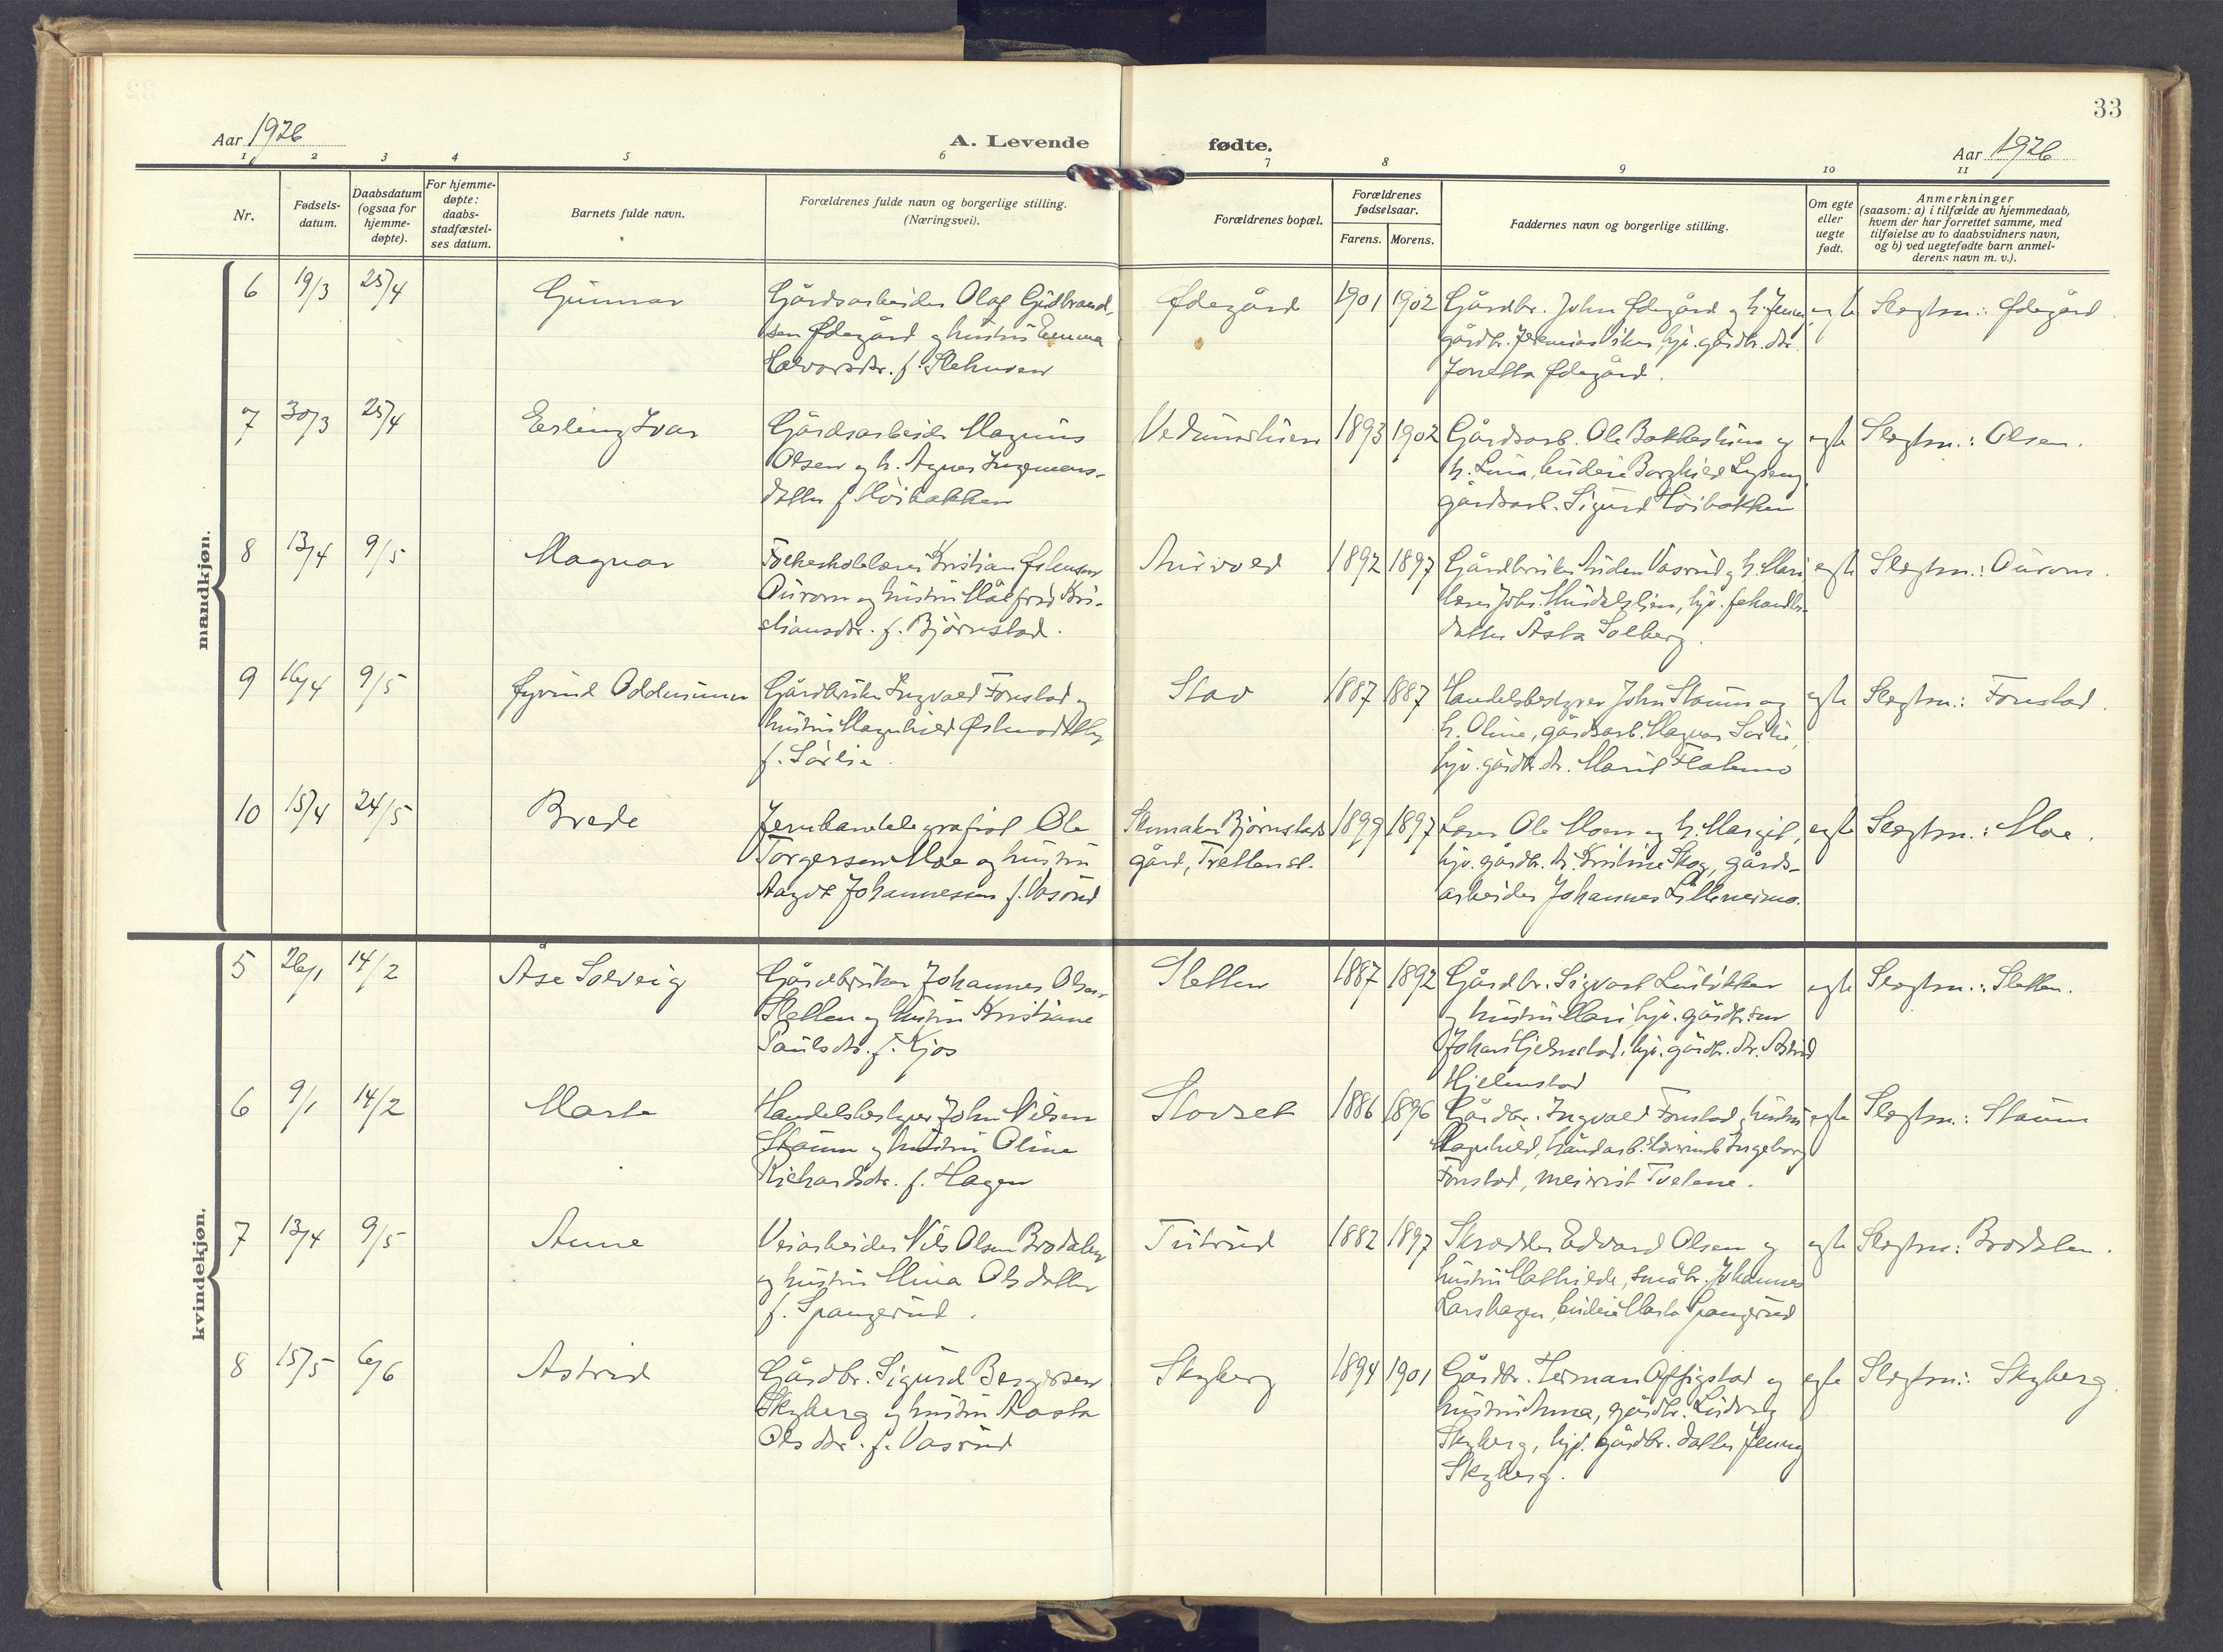 33
Aar 1926
A. Levende fødte.
Aar 1926
1 2 3 4 5 6 7 8 9 10 11
Nr.
Fødsels-
datum.
Daabsdatum
(ogsaa for
hjemme-
døpte).
For hjemme-
døpte:
daabs-
stadfæstel-
ses datum.
Barnets fulde navn.
Forældrenes fulde navn og borgerlige stilling.
(Næringsvei).
Forældrenes bopæl.
Forældrenes
fødselsaar.
Farens. Morens.
Faddernes navn og borgerlige stilling.
Om egte
eller
uegte
født.
Anmerkninger
(saasom: a) i tilfælde av hjemmedaab,
hvem der har forrettet samme, med
tilføielse av to daabsvidners navn,
og b) ved uegtefødte barn anmel-
derens navn m. v.).
mandkjøn.
6 19/3 25/4 Gunnar
Gårdsarbeider Olaf Gudbrand-
sen Ødegård og hustru Emma
Halvorsdtr. f.
Ødegård 1901 1902
Gårdbr. John Ødegård og h. Jenny,
gårdbr. Jeremias Viken, hjv. gårdbr. dtr.
Jonetta Ødegård.
egte Slegtsn.: Ødegård.
7 30/3 25/4 Erling Ivar
Gårdsarbeider Magnus
Olsen og h. Agnes Ingemans-
datter f. Høibakken
1893 1902
Gårdsarb. Ole Bakkestuen og
h. Lina, budeie Borghild
gårdsarb. Sigurd Høibakken
egte Slegtsn.: Olsen.
8 13/4 9/5 Magnar
Folkeskolelærer Kristian
Aurom og hustru Målfrid Kri-
stiansdtr. f. Bjørnstad.
1892 1897
Gårdbruker Auden Vasrud og h. Mari
lærer Johs. hjv.
datter Åsta Solberg.
egte Slegtsn.: Aurom.
9 16/4 9/5 Øyvind Oddmunn
Gårdbruker Ingvald Fonstad og
hustru Magnhild
f. Sørlie.
Stav 1887 1887
Handelsbestyrer John Staum og
h. Oline, gårdsarb. Magnar Sørlie,
hjv. gårdbr. dtr. Marit
egte Slegtsn.: Fonstad.
10 15/4 24/5 Brede
Jernbanetelegrafist Ole
Torgersen Moe og hustru
Aagot Johannesen f. Vasrud
Skomaker Bjørnstads
gård, Tretten st.
1899 1897
Lærer Ole Moen og h. Margit,
hjv. gårdbr. dtr. Kristine Skog, gårds-
arbeider Johannes
egte Slegtsn.: Moe.
kvindekjøn.
5 26/1 14/2 Åse Solveig
Gårdbruker Johannes Olsen
Sletten og hustru Kristiane
Paulsdtr. f. Kjos
Sletten 1887 1892
Gårdbr. Sigvart
og hustru Mari, hjv. gårdbr. søn
Johan Hjelmstad, hjv. gårdbr. dtr. Astrid
Hjelmstad
egte Slegtsn.: Sletten.
6 9/1 14/2 Marte
Handelsbestyrer John Nilsen
Staum og hustru Oline
Richardsdtr. f. Hagen
Stavset 1886 1896
Gårdbr. Ingvald Fonstad og hustru
Magnhild, håndarb. lærerinde Ingeborg
Fonstad, meierist Tvetene.
egte Slegtsn.: Staum
7 13/4 9/5 Anne
Veiarbeider Nils Olsen Brodalen
og hustru Mina Olsdatter
f. Spangerud.
Tutrud 1882 1897
Skredder Edvard Olsen og
hustru Mathilde, småbr. Johannes
Larshagen, budeie Marta Spangerud
egte Slegtsn.: Brodalen.
8 15/5 6/6 Astrid
Gårdbr. Sigurd Bergersen
Skyberg og hustru Aasta
Olsdtr. f. Vasrud
Skyberg 1894 1901
Gårdbr. Herman Offigstad og
hustru Anna, gårdbr. Ludvig
Skyberg, hjv. gårdbr. datter Jenny
Skyberg.
egte Slegtsn.: Skyberg.